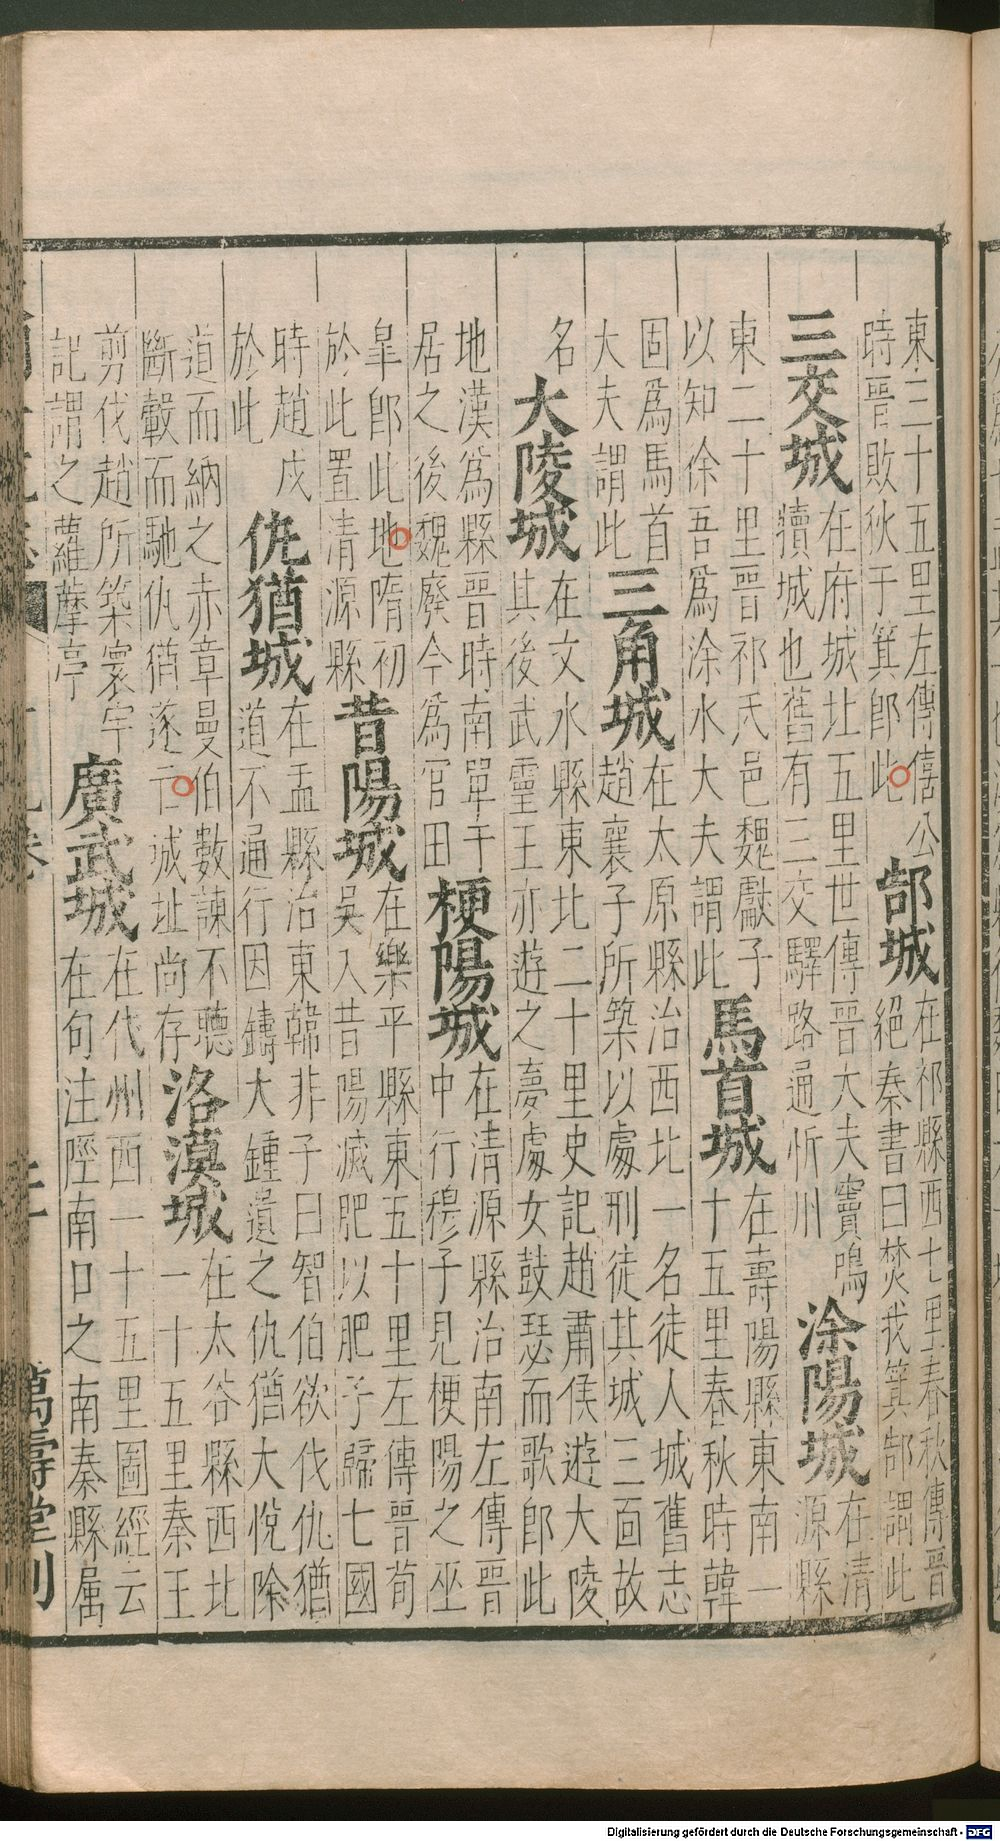 東三十五里左傳僖公
時晉敗狄于箕即此
郜城
在祁縣西七里春秋傳晉
絕秦書曰焚我箕郜謂此
三交城
在府城北五里世傳晉大夫竇鳴
犢城也舊有三交驛路通忻州
涂陽城
在清
源縣
東二十里晉祁氏邑魏獻子
以知徐吾爲涂水大夫謂此
馬首城
在壽陽縣東南一
十五里春秋時韓
固爲馬首
大夫謂此
三角城
在太原縣治西北一名徒人城舊志
趙襄子所築以處刑徒其城三面故
名
大陵城
在文水縣東北二十里史記趙肅侯遊大陵
其後武靈王亦遊之夢處女鼓瑟而歌即此
地漢爲縣晉時南單于
居之後魏廢今爲官田
梗陽城
在清源縣治南左傳晉
中行穆子見梗陽之巫
皐即此地隋初
於此置清源縣
昔陽城
在樂平縣東五十里左傳晉荀
吳入昔陽滅肥以肥子歸七國
時趙戍
於此
仇猶城
在盂縣治東韓非子曰智伯欲伐仇猶
道不通行因鑄大鍾遺之仇猶大悅除
道而納之赤章曼伯數諫不聽
斷轂而馳仇猶遂亡城址尚存
洛漠城
在太谷縣西北
一十五里秦王
剪伐趙所築寰宇
記謂之蘿藦亭
廣武城
在代州西一十五里圖經云
在句注陘南口之南秦縣属
萬壽堂刊
Digitalisierung gefördert durch die Deutsche Forschungsgemeinschaft - DFG